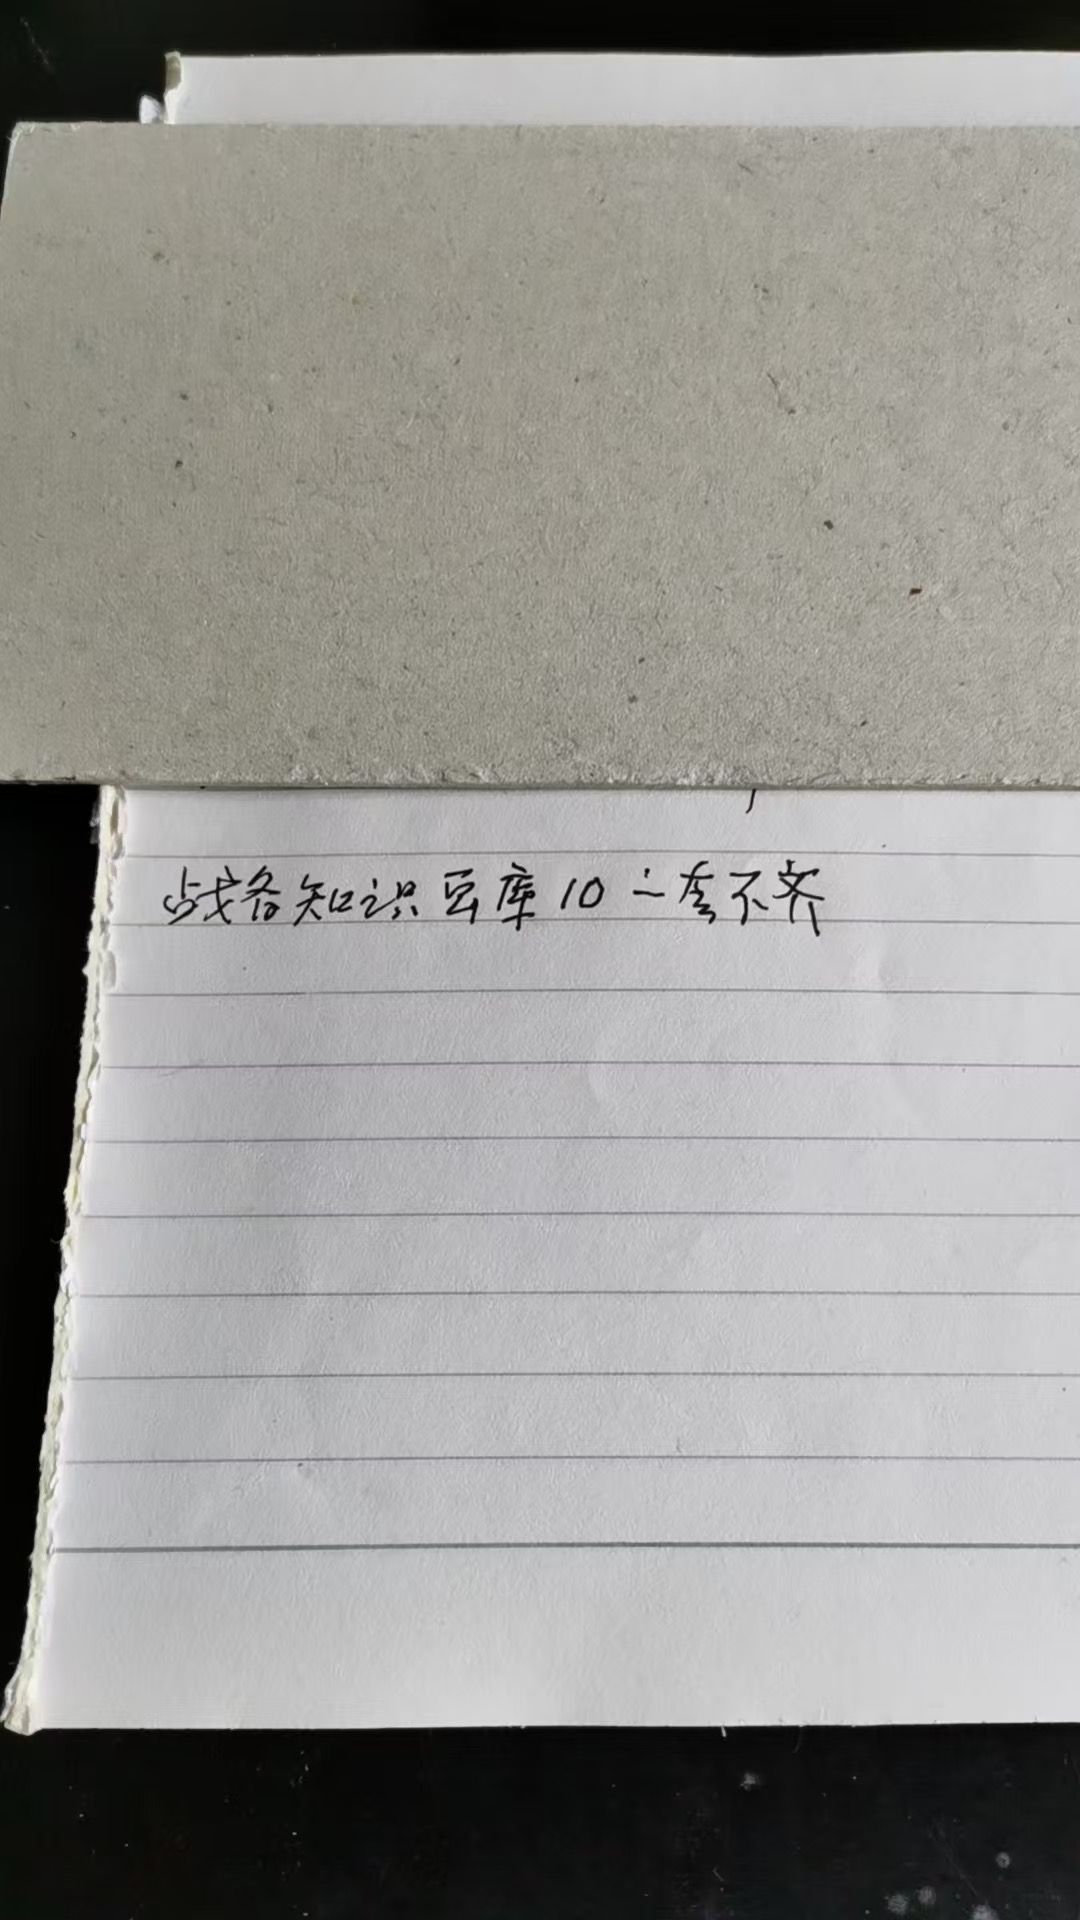 战各知识豆库10二套不齐